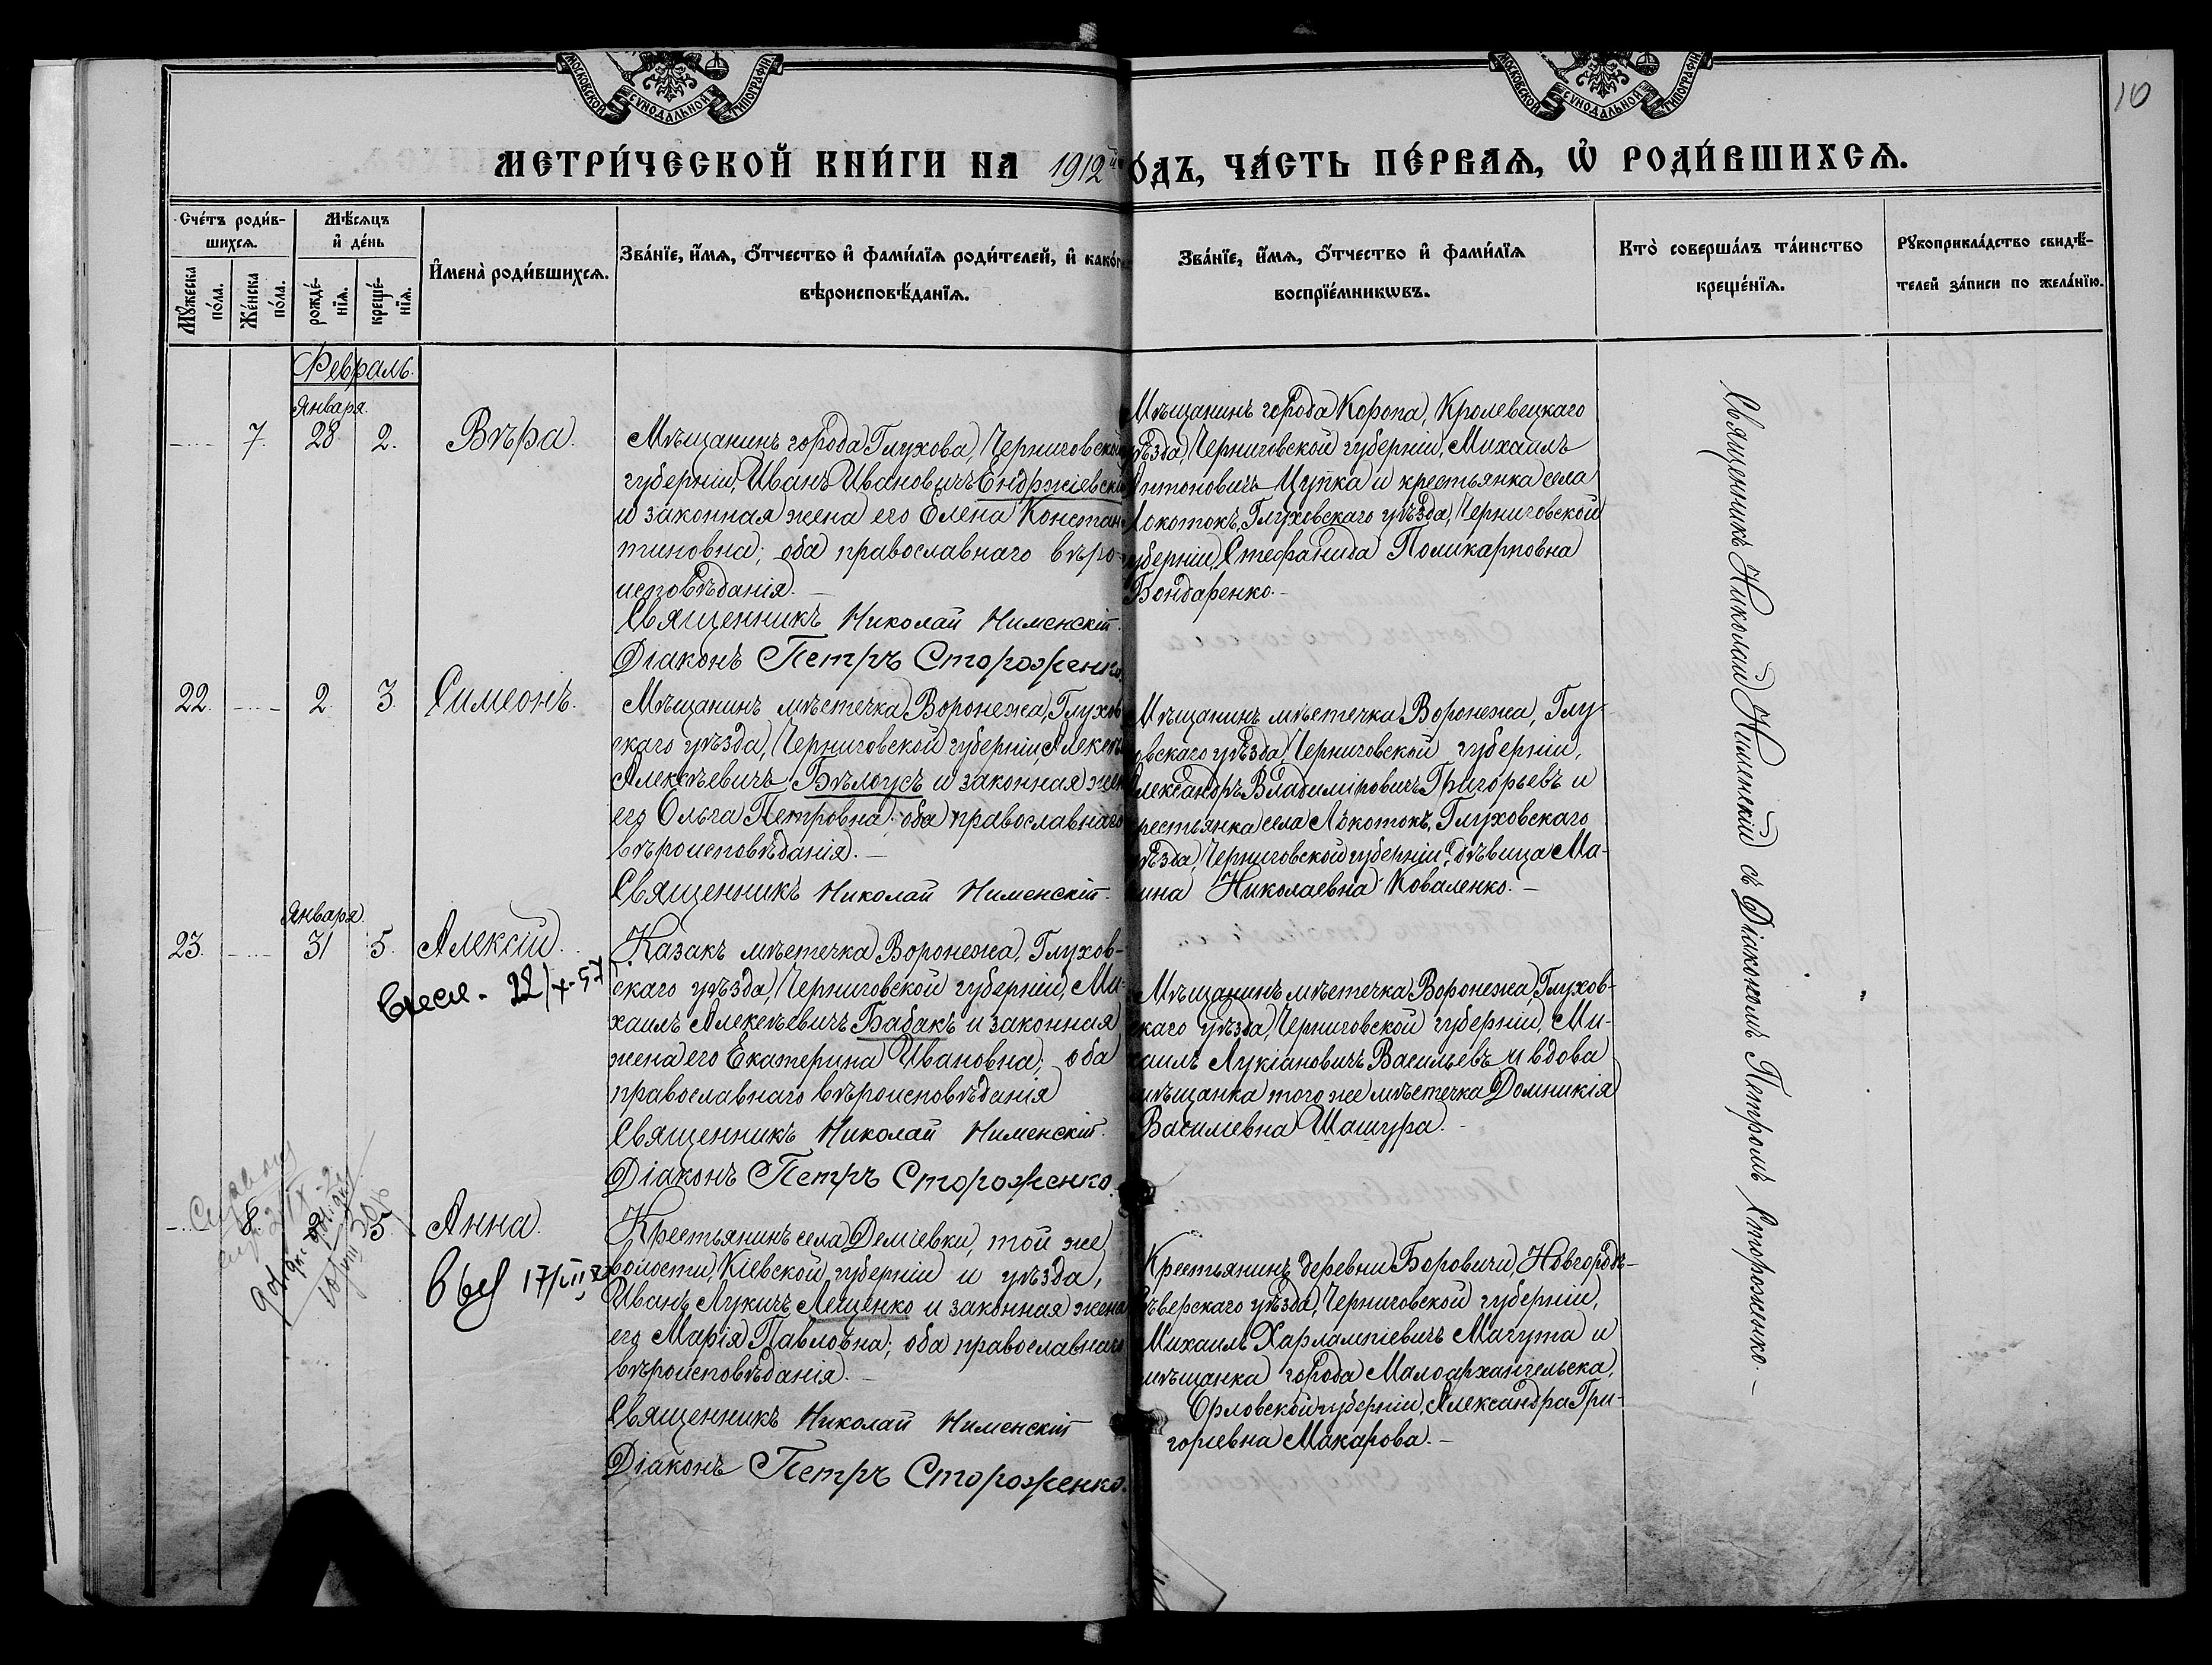 МОСКОВСКОЙ СѴНОДАЛЬНОЙ ТИПОГРАФІИ
МОСКОВСКОЙ СѴНОДАЛЬНОЙ ТИПОГРАФІИ
10
МЕТРИ́ЧЕСКОЙ КНИ́ГИ НА 1912 О́ДЪ, ЧА́СТЬ ПЕ́РВАѦ, Ѡ҆ РОДИ́ВШИХСѦ.
Сче́тъ роди́в-
шихсѧ.
Мꙋ́жеска по́ла.
Же́нска по́ла.
Мѣ́сѧцъ
и҆ де́нь
рожде́-
нїѧ.
креще́-
нїѧ.
И҆мена̀ роди́вшихсѧ.
Зва́нїе, и҆́мѧ, ѻ҆́тчество и҆ фами́лїѧ роди́телей, и҆ како́г
вѣроисповѣ́данїѧ.
Зва́нїе, и҆́мѧ, ѻ҆́тчество и҆ фами́лїѧ
воспрїе́мникѡвъ.
Кто̀ соверша́лъ та́инство
креще́нїѧ.
Рꙋкоприкла́дство свидѣ́-
телей за́писи по жела́нїю.
Февраль.
Января.
7. 28 2. Вѣра.
Мѣщанинъ города Глухова, Черниговской
губерніи, Иванъ Ивановичъ Енджіевскі
и законная жена его Елена Констан-
тиновна; оба православнаго вѣро-
исповѣданія. —
Священникъ Николай Нименскій.
Діаконъ Петръ Стороженко.
Мѣщанинъ города Коропа, Кролевецкаго
уѣзда, Черниговской губерніи, Михаилъ
Антоновичъ Цупка и крестьянка села
Локотокъ, Глуховскаго уѣзда, Черниговской
губерніи, Стефанида Поликарповна
Бондаренко. —
22. 2. 3. Симеонъ.
Мѣщанинъ мѣстечка Воронежа, Глухов
скаго уѣзда, Черниговской губерніи, Алексѣ
Алексѣевичъ Бѣлоусъ и законная жен
его Ольга Петровна; оба православнаго
вѣроисповѣданія. —
Священникъ Николай Нименскій.
Мѣщанинъ мѣстечка Воронежа, Глу-
овскаго уѣзда, Черниговской губерніи,
лександръ Владиміровичъ Григорьевъ и
рестьянка села Локотокъ, Глуховскаго
уѣзда, Черниговской губерніи, дѣвица Ма-
ина Николаевна Коваленко. —
Января.
23. 31 5. Алексій.
22/X-57
Казакъ мѣстечка Воронежа, Глухов-
скаго уѣзда, Черниговской губерніи, Ми-
хаилъ Алексѣевичъ Бабакъ и законная
жена его Екатерина Ивановна; оба
православнаго вѣроисповѣданія
Священникъ Николай Нименскій.
Діаконъ Петръ Стороженко.
Мѣщанинъ мѣстечка Воронежа, Глухов-
скаго уѣзда, Черниговской губерніи, Ми-
хаилъ Лукіановичъ Васильевъ и вдова
мѣщанка того же мѣстечка Домникія
Василіевна Шашура. —
8. 5. Анна.
Крестьянинъ села Деміевки, той же
волости, Кіевской губерніи и уѣзда,
Иванъ Лукичъ Лещенко и законная жена
его Марія Павловна; оба православнаго
вѣроисповѣданія. —
Священникъ Николай Нименскій
Діаконъ Петръ Стороженко.
Крестьянинъ деревни Боровичи, Новгородъ-
Сѣверскаго уѣзда, Черниговской губерніи,
Михаилъ Харлампіевичъ Магута и
мѣщанка города Малоархангельска,
Орловской губерніи, Александра Гри-
горіевна Макарова. —
Священникъ Николай Нименскій съ Діакономъ Петромъ Стороженко. —